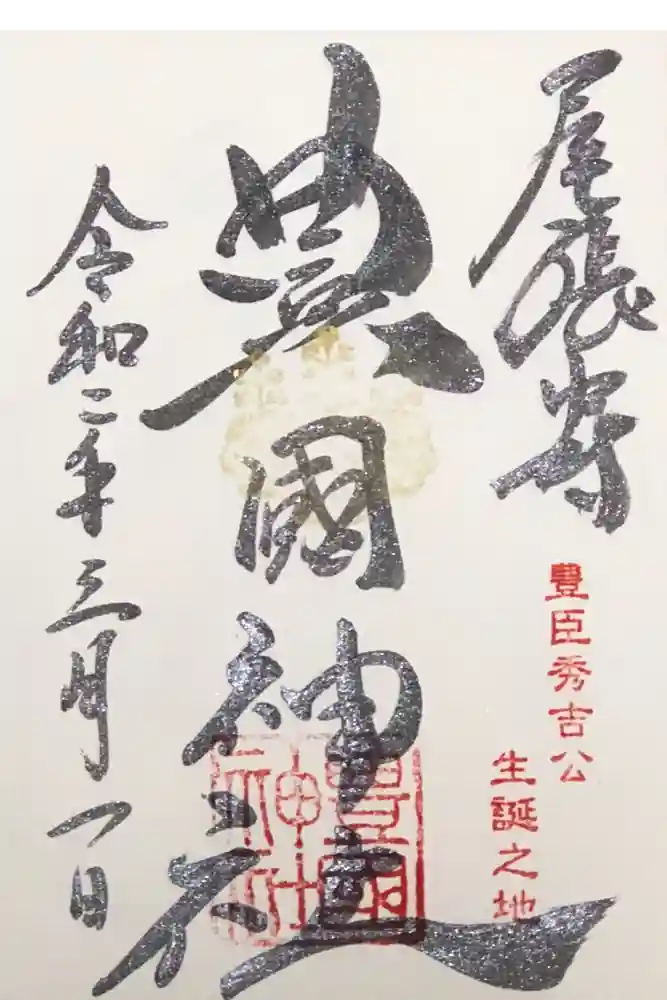 尾張中村
豐臣秀吉公
生誕之地
豊國神社
豊國
神社
令和二年三月一日